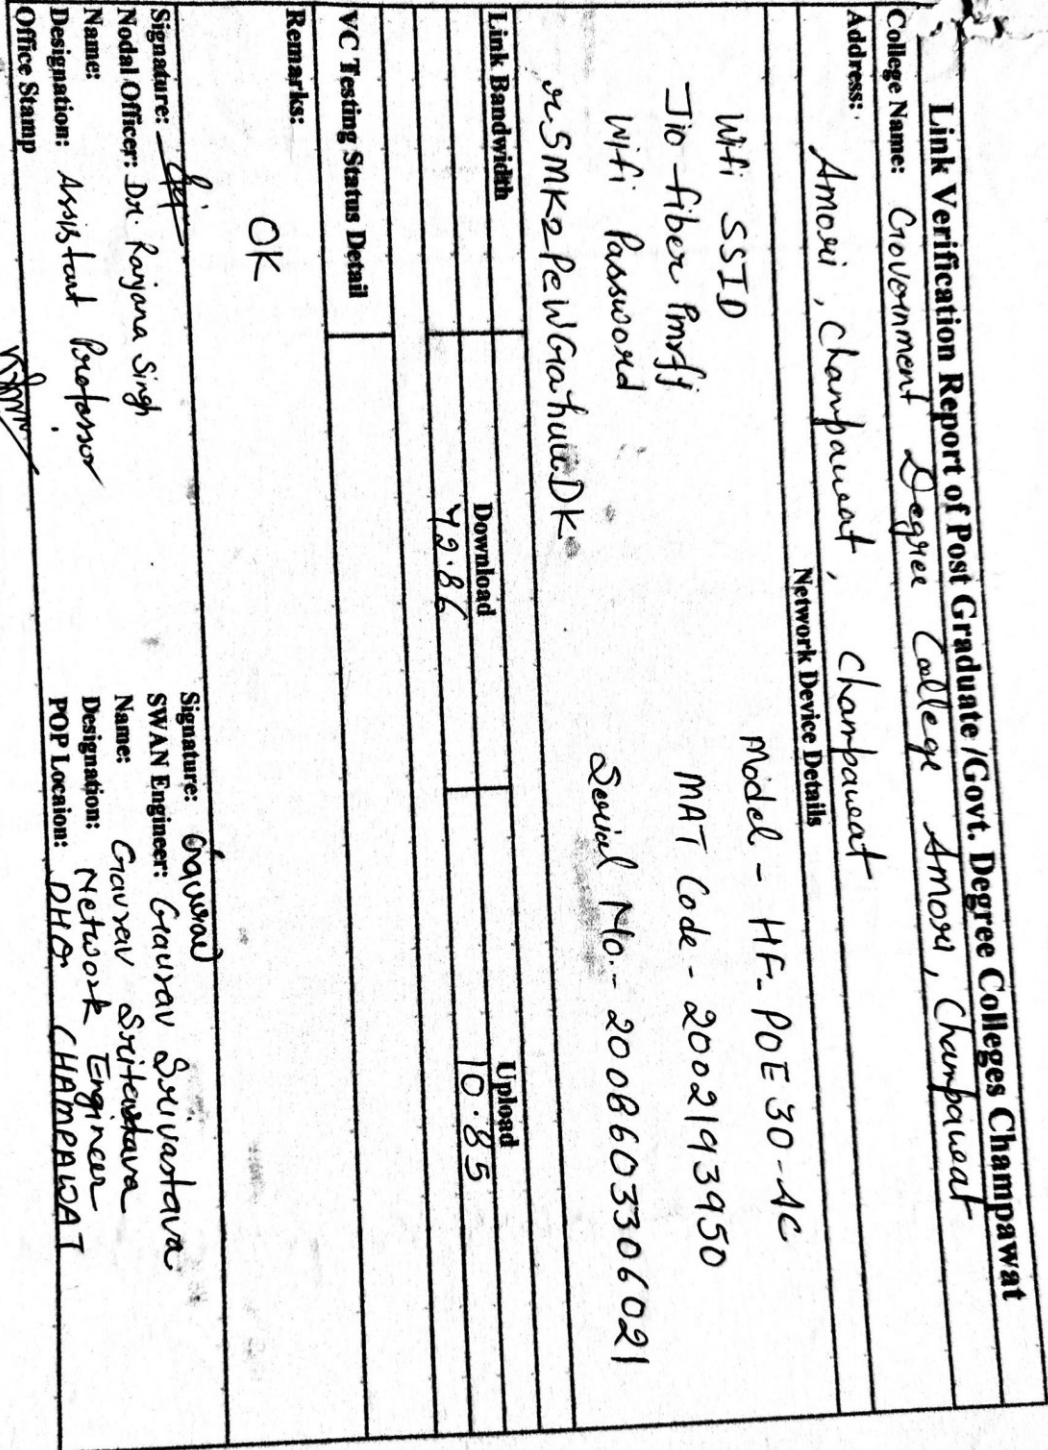 Link Verification Report of Post Graduate /Govt. Degree Colleges Champawat
College Name: Government Degree College Amori, Champawat
Address: Amori, Champawat, Champawat
Network Device Details
Wifi SSID
Jio-fiber Pmrfj
Wifi Password
Model - HF-POE 30-AC
MAT Code - 2002193950
Serial No.-
Link Bandwidth
Download
Upload
42.86
10.85
VC Testing Status Detail
Remarks:
OK
Signature:
Nodal Officer: Dr. Ranjana Singh
Name:
Designation: Assistant Professor
Office Stamp
Signature: Gaurav
SWAN Engineer: Gaurav Srivastava
Name: Gaurav Sritastava
Designation: Network Engineer
POP Locaion: DHQ CHAMPAWAT